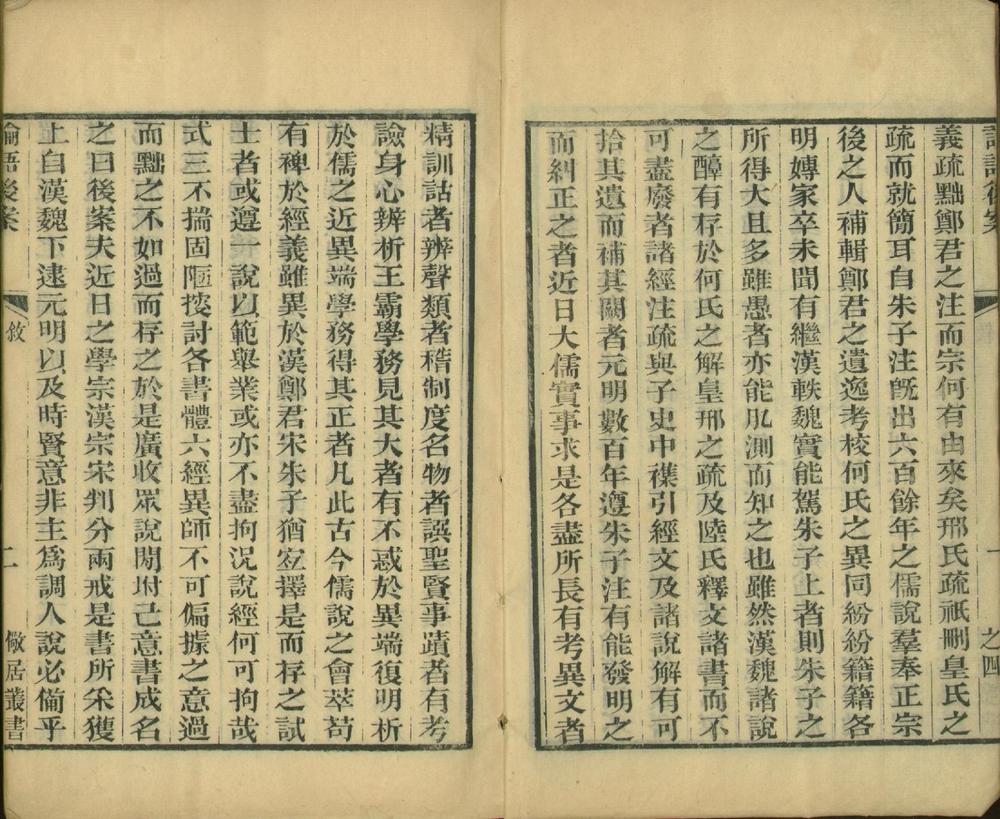 論語後案 一 之四
義疏黜鄭君之注而宗何有由來矣邢氏疏祇刪皇氏之
疏而就簡耳自朱子注旣出六百餘年之儒說羣奉正宗
後之人補輯鄭君之遺逸考校何氏之異同紛紛籍籍各
明嫥家卒未聞有繼漢軼魏實能駕朱子上者則朱子之
所得大且多雖愚者亦能肊測而知之也雖然漢魏諸說
之醇有存於何氏之解皇邢之疏及陸氏釋文諸書而不
可盡廢者諸經注疏與子史中襍引經文及諸說解有可
拾其遺而補其闕者元明數百年遵朱子注有能發明之
而糾正之者近日大儒實事求是各盡所長有考異文者
精訓詁者辨聲類者稽制度名物者譔聖賢事蹟者有考
譣身心辨析王霸學務見其大者有不惑於異端復明析
於儒之近異端學務得其正者凡此古今儒說之會萃苟
有裨於經義雖異於漢鄭君宋朱子猶宐擇是而存之試
士者或遵一說㠯範舉業或亦不盡拘況說經何可拘哉
式三不揣固陋挍討各書體六經異師不可偏據之意過
而黜之不如過而存之於是廣收眾說閒坿己意書成名
之曰後案夫近日之學宗漢宗宋判分兩戒是書所采獲
上自漢魏下逮元明㠯及時賢意非主爲調人說必備乎
論語後案 敘 二 儆居叢書